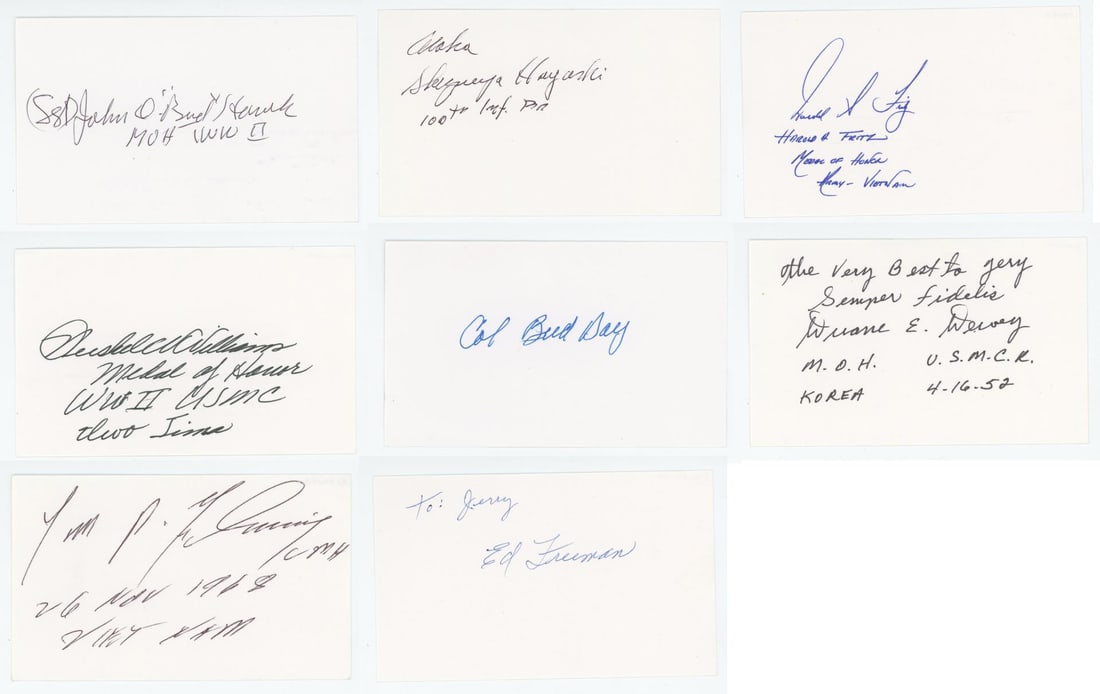 (SSgt) John D "Bud" Hawk
MOH WW II
Aloha
Shizuya Hayashi
100th Inf. Bn
Harold A Fritz
HAROLD A FRITZ
MEDAL OF HONOR
ARMY - VIETNAM
Hershel W Williams
Medal of Honor
WW II USMC
Iwo Jima
Col Bud Day
The Very Best to Gery
Semper Fidelis
Duane E. Dewey
M.O.H. U.S.M.C.R.
KOREA 4-16-52
James P. Fleming
CMH
26 NOV 1968
VIET NAM
To: Jerry
Ed Freeman